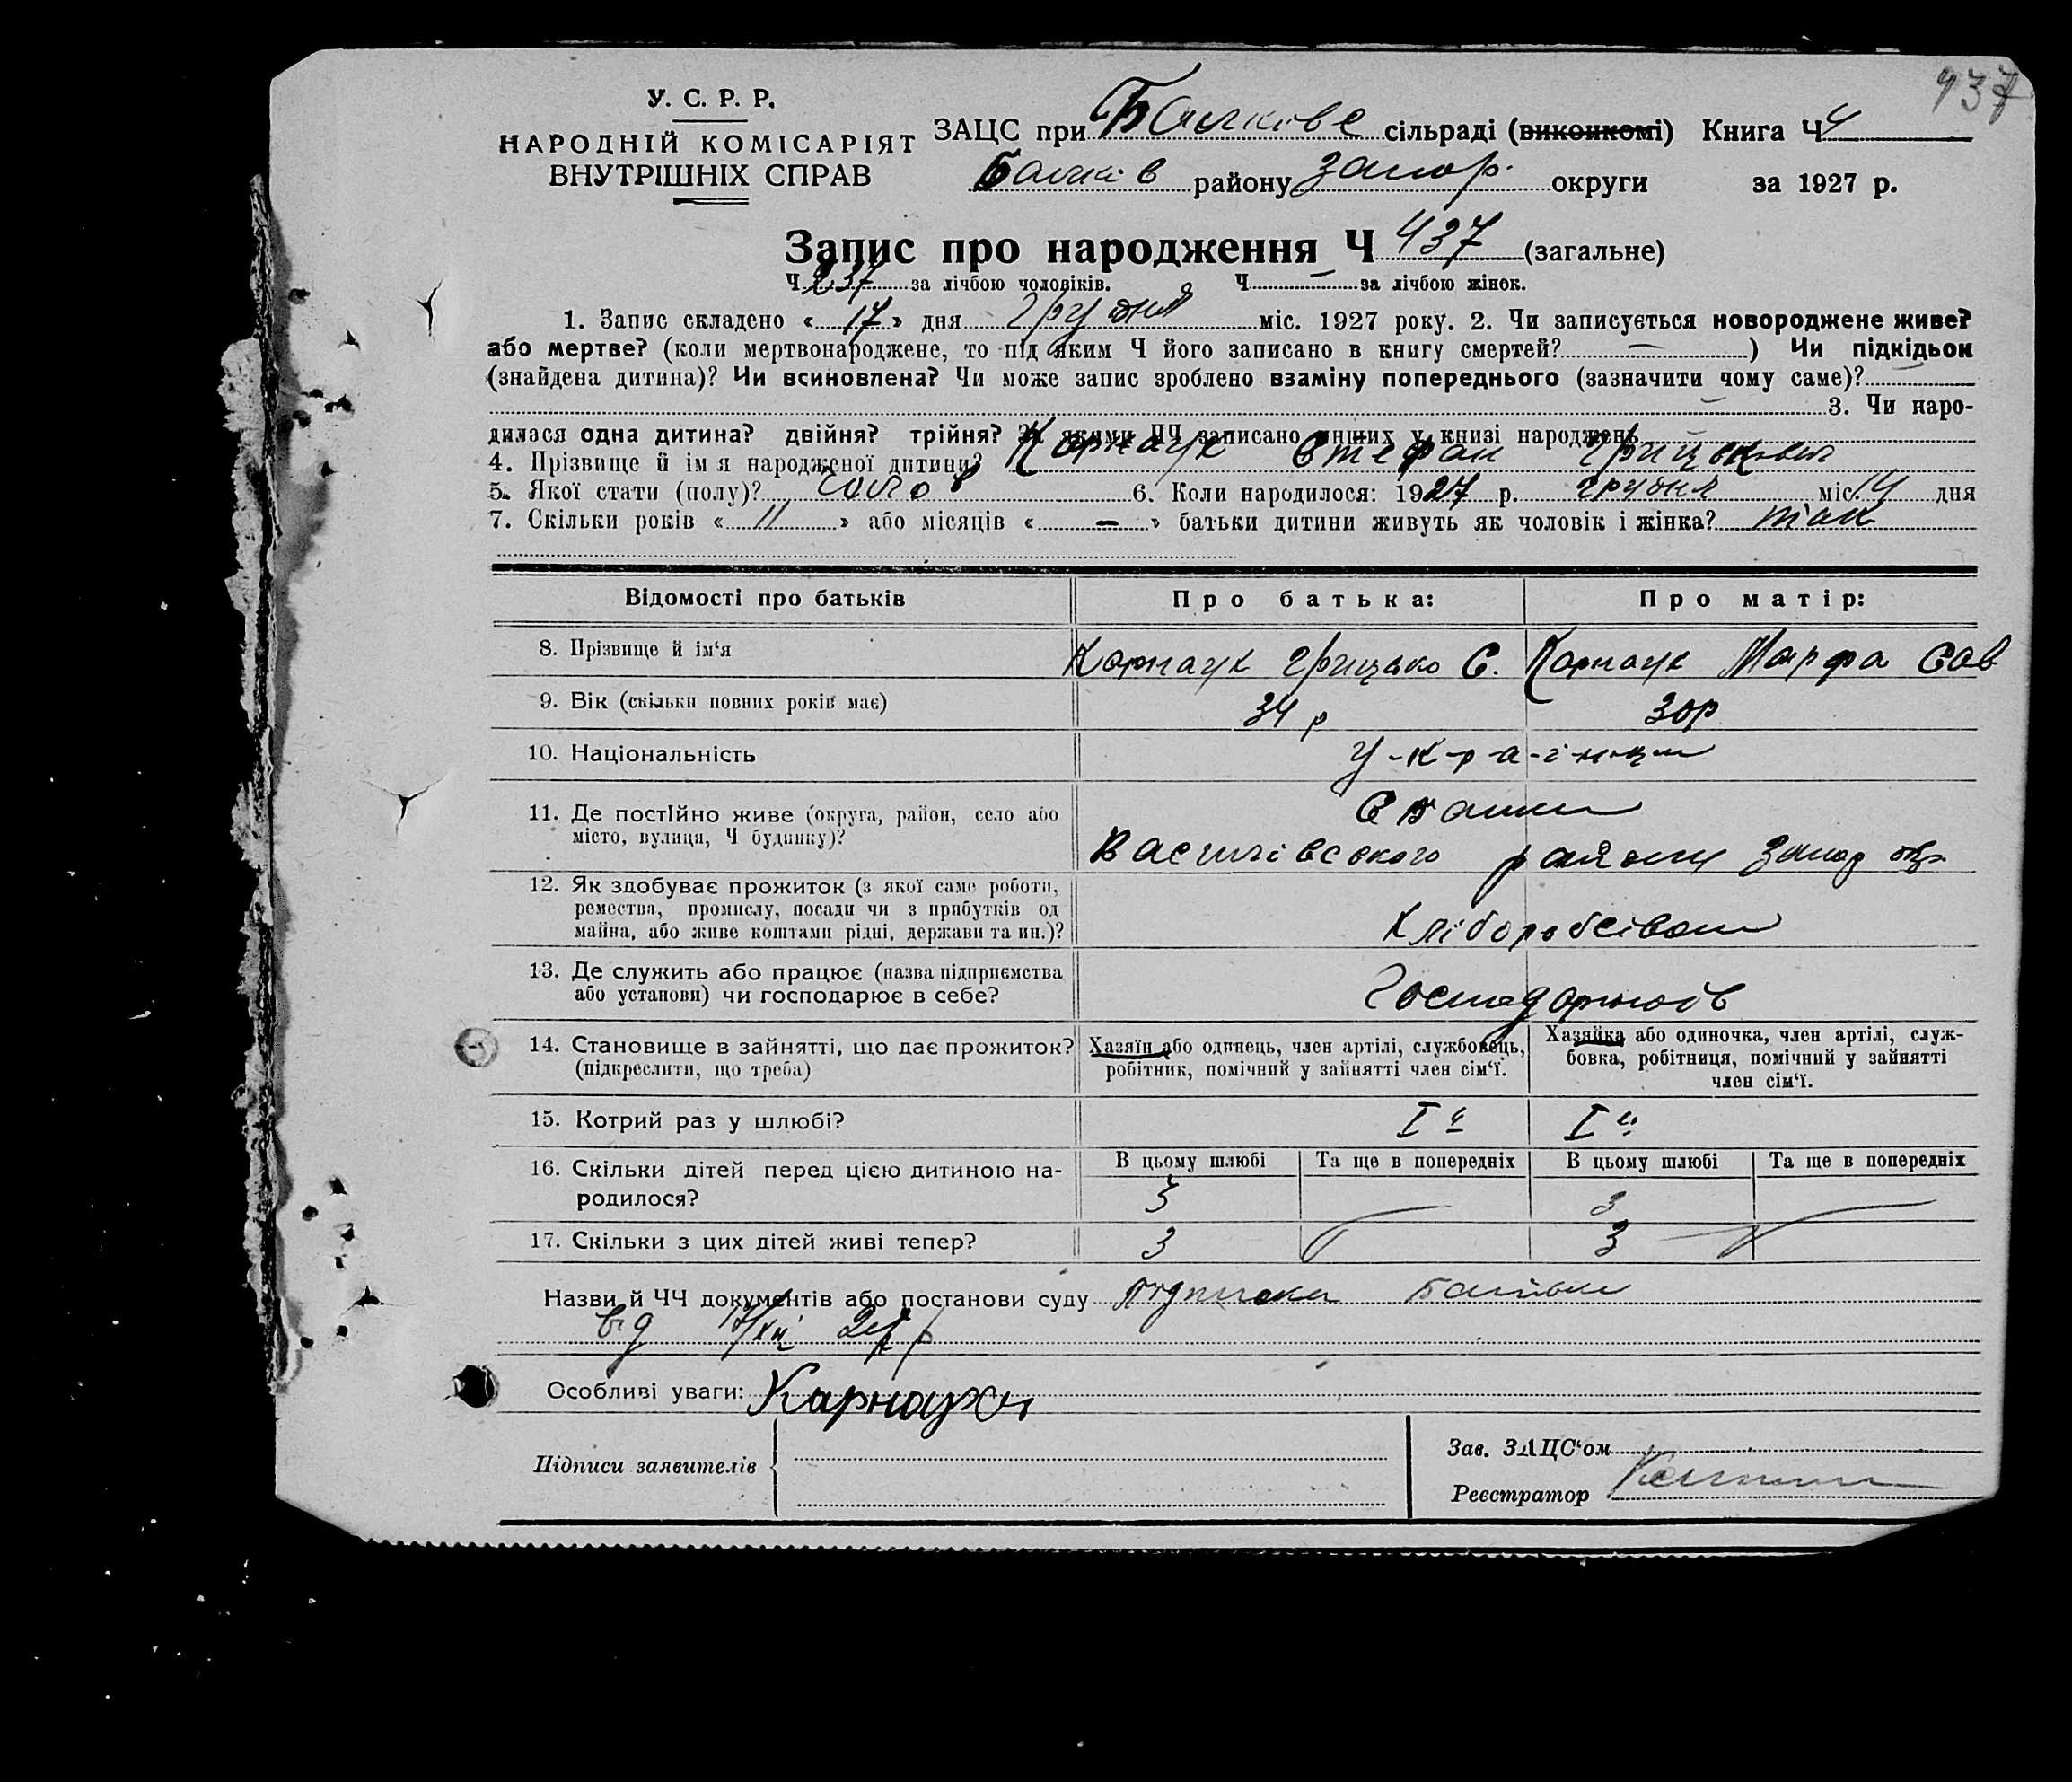 437
У. С. Р. Р.
НАРОДНІЙ КОМІСАРІЯТ
ВНУТРІШНІХ СПРАВ
ЗАЦС при Балкове сільраді (виконкомі) Книга Ч 4
Балків району Запор. округи за 1927 р.
Запис про народження Ч 437 (загальне)
Ч 237 за лічбою чоловіків. Ч — за лічбою жінок.
1. Запис складено « 17 » дня грудня міс. 1927 року. 2. Чи записується новороджене живе?
або мертве? (коли мертвонароджене, то під яким Ч його записано в книгу смертей? — ) Чи підкідьок
(знайдена дитина)? Чи всиновлена? Чи може запис зроблено взаміну попереднього (зазначити чому саме)?
— 3. Чи наро-
дилася одна дитина? двійня? трійня? За якими ЧЧ записано инших у книзі народжень
4. Прізвище й ім я народженої дитини? Карнаук Стефан Грицькович
5. Якої стати (полу)? чолов 6. Коли народилося: 1927 р. грудня міс. 14 дня
7. Скільки років « 11 » або місяців « — » батьки дитини живуть як чоловік і жінка? так
Відомості про батьків Про батька: Про матір:
8. Прізвище й ім‘я Карнаук Грицько С. Карнаук Марфа Сав
9. Вік (скільки повних років має) 34 р 30р
10. Національність У-к-р-а-ї-нци
11. Де постійно живе (округа, район, село або
місто, вулиця, Ч будинку)?
Василівського району Запор окр
12. Як здобуває прожиток (з якої саме роботи,
ремества, промислу, посади чи з прибутків од
майна, або живе коштами рідні, держави та ин.)? Хліборобсівом
13. Де служить або працює (назва підприємства
або установи) чи господарює в себе? Господарюють
14. Становище в зайнятті, що дає прожиток?
(підкреслити, що треба)
Хазяїн або одинець, член артілі, службовець,
робітник, помічний у зайнятті член сім‘ї.
Хазяйка або одиночка, член артілі, служ-
бовка, робітниця, помічний у зайнятті
член сім‘ї.
15. Котрий раз у шлюбі? I й I й
16. Скільки дітей перед цією дитиною на-
родилося?
В цьому шлюбі Та ще в попередніх В цьому шлюбі Та ще в попередніх
3 — 3 —
17. Скільки з цих дітей живі тепер? 3 3
Назви й ЧЧ документів або постанови суду Підписка батьки
від 17/XII 27 р
Особливі уваги: Карнаух
Підписи заявителів
Зав. ЗАЦС‘ом
Реєстратор